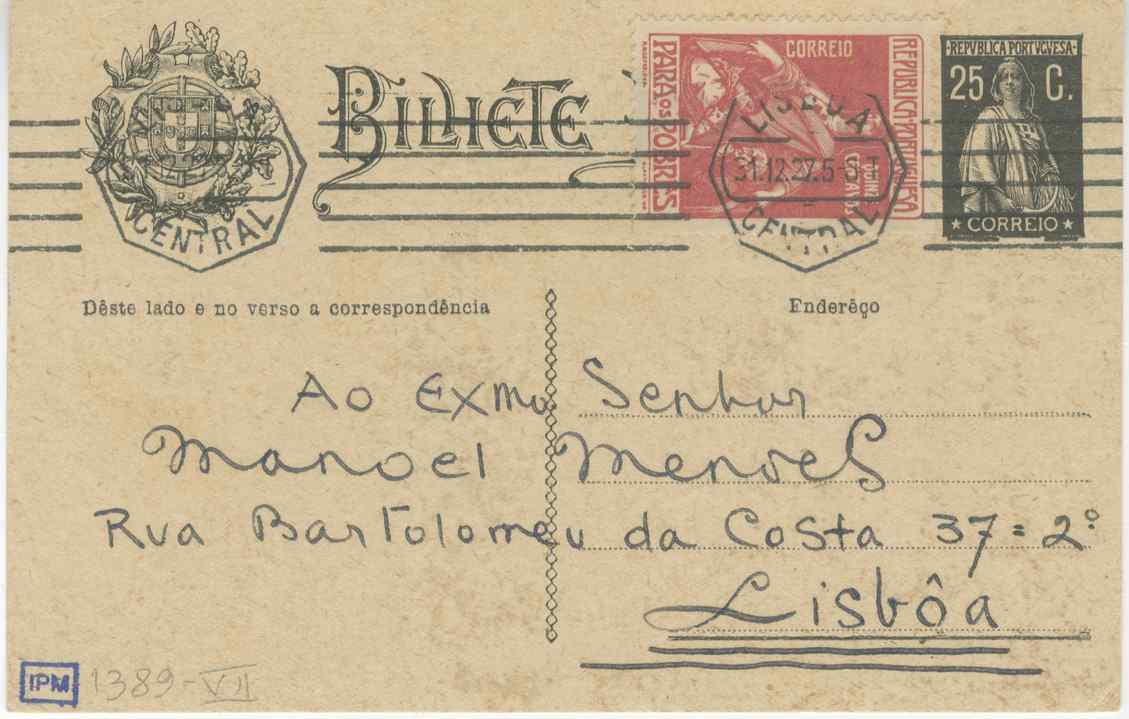 BILHETE
PARA OS POBRES
CORREIO
REPUBLICA PORTUGUESA
REPVBLICA PORTVGVESA
25 C.
CORREIO
LISBOA
31.12.27.5-6 T
CENTRAL
CENTRAL
Dêste lado e no verso a correspondência
Enderêço
Ao Exmo. Senhor
Manoel Mendes
Rua Bartolomeu da Costa 37=2º
Lisbôa
IPM 1389-VII